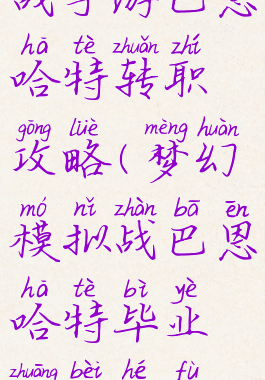 战手游巴恩
hā tè zhuǎn zhí
哈特转职
gōng lüè mèng huàn
攻略(梦幻
mó nǐ zhàn bā ēn
模拟战巴恩
hā tè bì yè
哈特毕业
zhuāng bèi hé fù